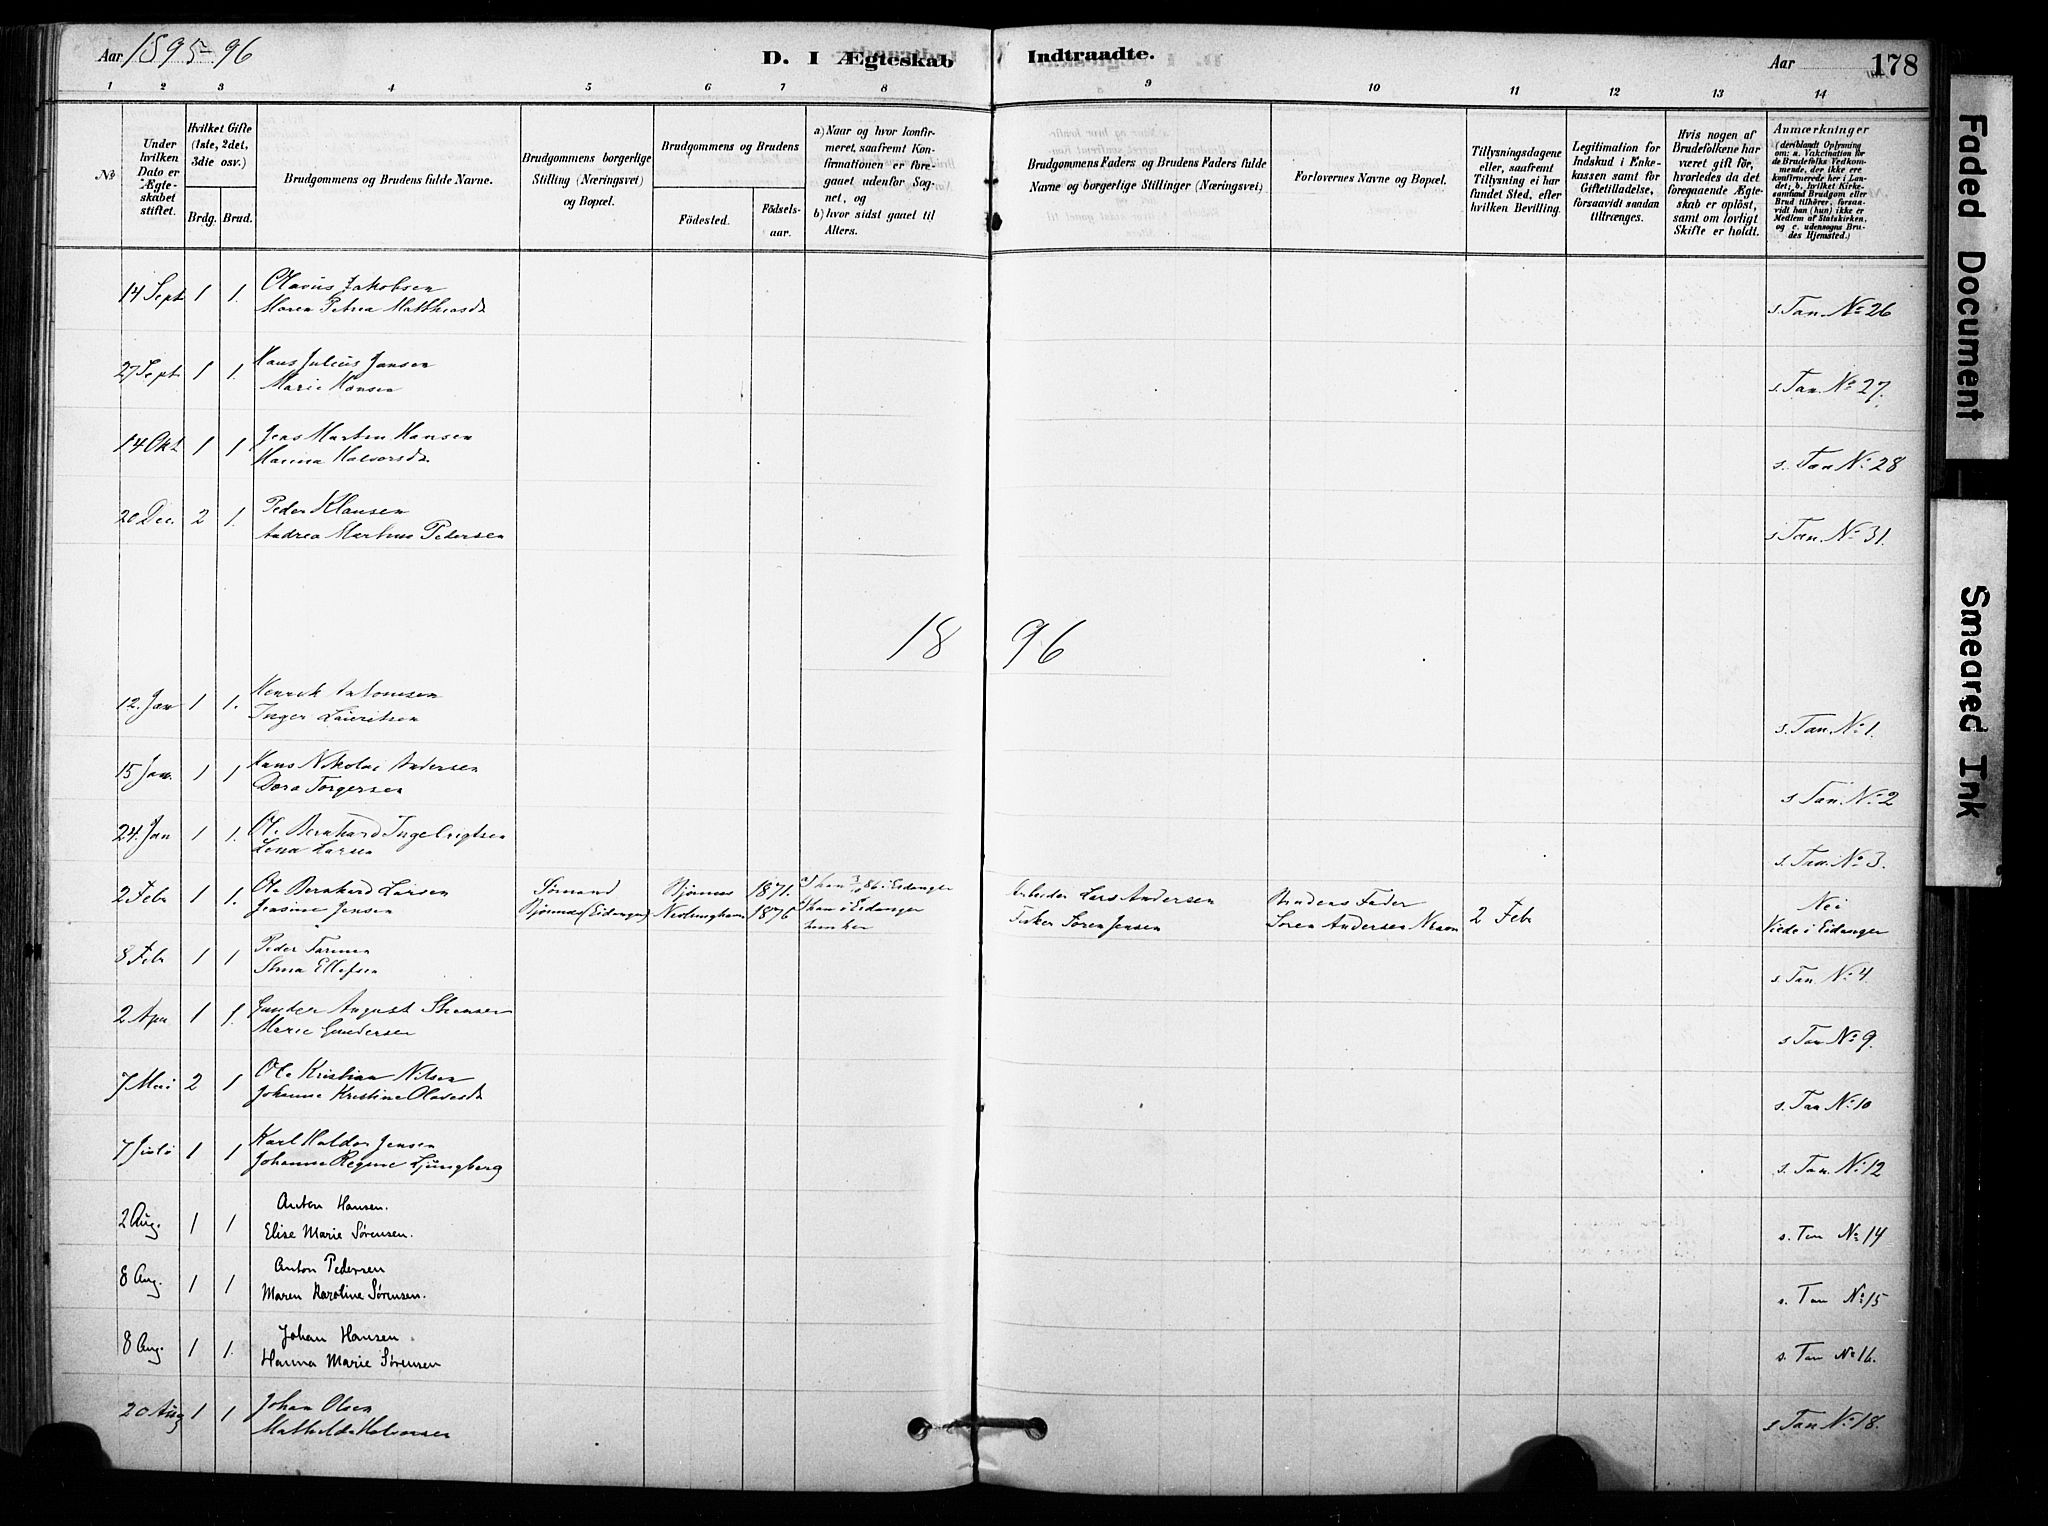 Aar 1895-96
D. I Ægteskab Indtraadte.
Aar 178
1 2 3 4 5 6 7 8 9 10 11 12 13 14
No
Under hvilken Dato er Ægteskabet stiftet.
Hvilket Gifte (1ste, 2det, 3die osv.)
Brdg. Brud.
Brudgommens og Brudens fulde Navne.
Brudgommens borgerlige Stilling (Næringsvei) og Bopæl.
Brudgommens og Brudens
Födested. Födselsaar.
a) Naar og hvor konfirmeret, saafremt Konfirmationen er foregaaet udenfor Sognet, og
b) hvor sidst gaaet til Alters.
Brudgommens Faders og Brudens Faders fulde Navne og borgerlige Stillinger (Næringsvei)
Forlovernes Navne og Bopæl.
Tillysningsdagene eller, saafremt Tillysning ei har fundet Sted, efter hvilken Bevilling.
Legitimation for Indskud i Enkekassen samt for Giftetilladelse, forsaavidt saadan tiltrænges.
Hvis nogen af Brudefolkene har været gift för, hvorledes da det foregaaende Ægteskab er oplöst, samt om lovligt Skifte er holdt.
Anmærkninger (deriblandt Oplysning om: a. Vakcination for de Brudefolks Vedkommende, der ikke ere konfirmerede her i Landet; b. hvilket Kirkesamfund Brudgom eller Brud tilhörer, forsaavidt han (hun) ikke er Medlem af Statskirken, og c. udensogns Brudes Hjemsted.)
14 Sept 1 1. Olavus Jakobsen
Maren Petrea Matthiasdt s. Tan. No 26
27 Sept 1 1. Hans Julius Jansen
Marie Hansen s. Tan. No 27.
14 Okt 1 1. Jens Martin Hansen
Hanna Halvorsdt. s. Tan No 28
20 Dec. 2 1. Peder Klausen
Andrea Martine Pedersen s Tan. No 31.
18 96
12. Jan 1 1. Henrik Antonsen
Inger Lauritsen s. Tan. No 1.
15 Jan. 1 1 Hans Nikolai Andersen
Dora Torgersen s Tan. No 2
24. Jan 1 1. Ole Bernhard Ingebrigtsen
Lena Larsen s. Tan. No 3.
2 Febr 1 1. Ole Bernhard Larsen Sømand Bjørnnes 1871. Arbeider Lars Andersen Brudens Fader Nei
Jensine Jensen Bjørnnes (Eidanger) 1876 Fisker Søren Jensen Søren Andersen 2 Febr Viede i Eidanger
8 Febr 1 1 Peder
Stina Ellefsen s. Tan No 4.
2 Apr 1 1. Gunder August
Marie Gundersen s Tan No 9.
7 Mai 2 1 Ole Kristian Nilsen
Johanne Kristine Olavesdt s. Tan No 10
7 Juli 1 1 Karl Haldor Jensen
Johanne Regine Ljungberg s. Tan. No 12
2 Aug. 1 1 Anton Hansen.
Elise Marie Sørensen. s. Tan No 14
8 Aug. 1 1 Anton Pedersen
Maren Karoline Sørensen. s. Tan No 15
8 Aug. 1 1. Johan Hansen
Hanna Marie Sørensen s. Tan No 16.
20 Aug 1 1 Johan Olsen
Mathilde s Tan No 18.
Faded Document
Smeared Ink